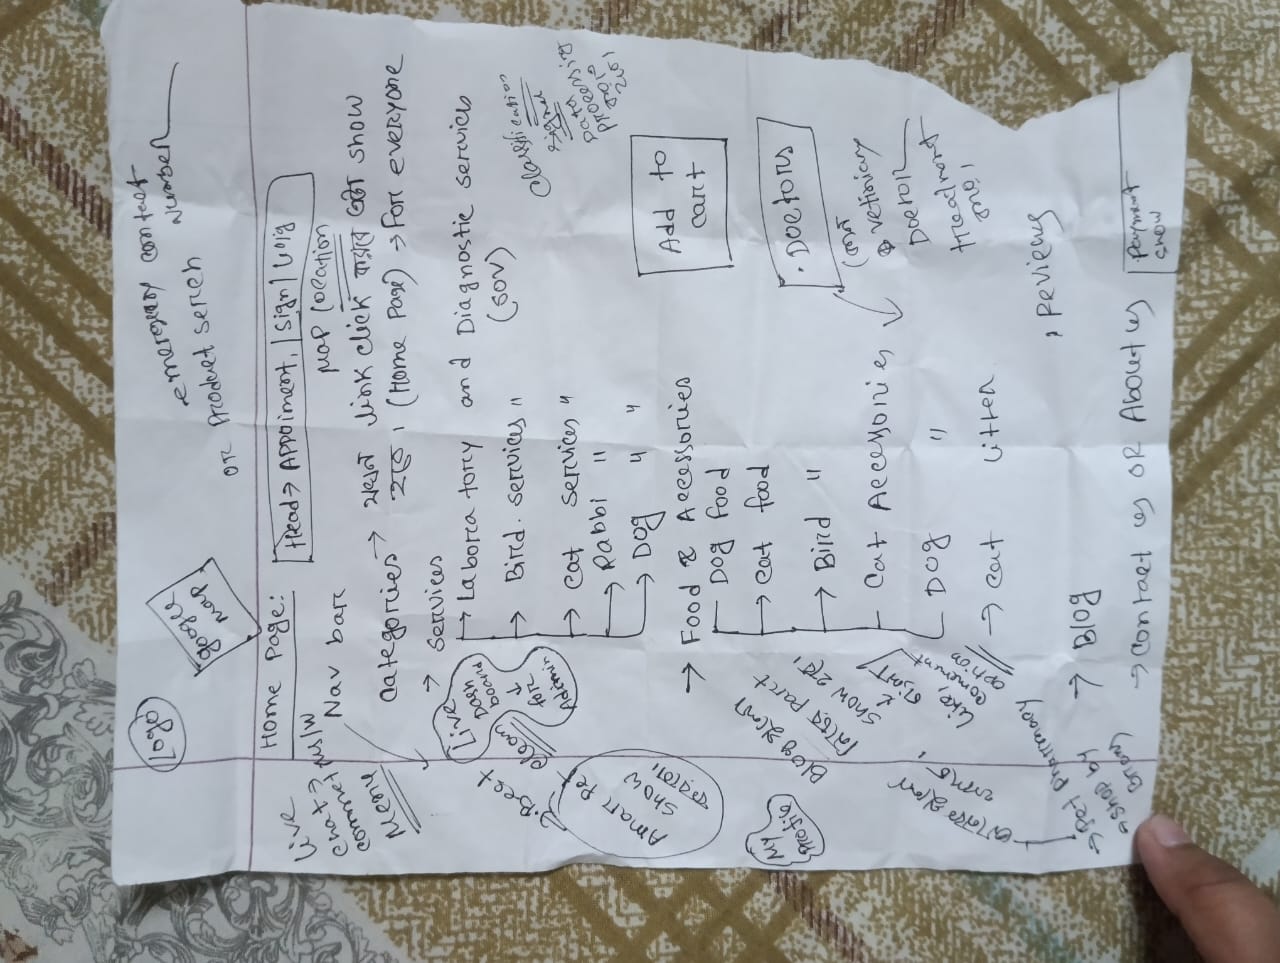 Logo
google
map
emergency contact
Number
OR Product serch
Home Page:
Head → Appoiment, | Sign |
Map Location
Live
chat →
commet
Menu
Nav bar
Categories → যখন link click করবে ওটা show
হবে। (Home Page) → For everyone
→ Services
→ Labora tory and Diagnostic services
(SOV)
→ Bird. services "
→ Cat services "
→ Rabbi "
→ Dog " "
Live
Dash
board
↓
for
Admin
clean
Amar Pet
show
করবে।
Classification
signal
Data
processing
→ Food & Accessories
Dog food
→ cat food
→ Bird "
Cat Accessories
Dog "
→ cat litter
Add to
cart
. Doctors
Doctor
My
Profile
Part
show হবে।
↓
Like,
comment
option
→ Pet Pharmacy
→ shop by
, Reviews
→ Blog
→ Contact us OR About us
Payment
show